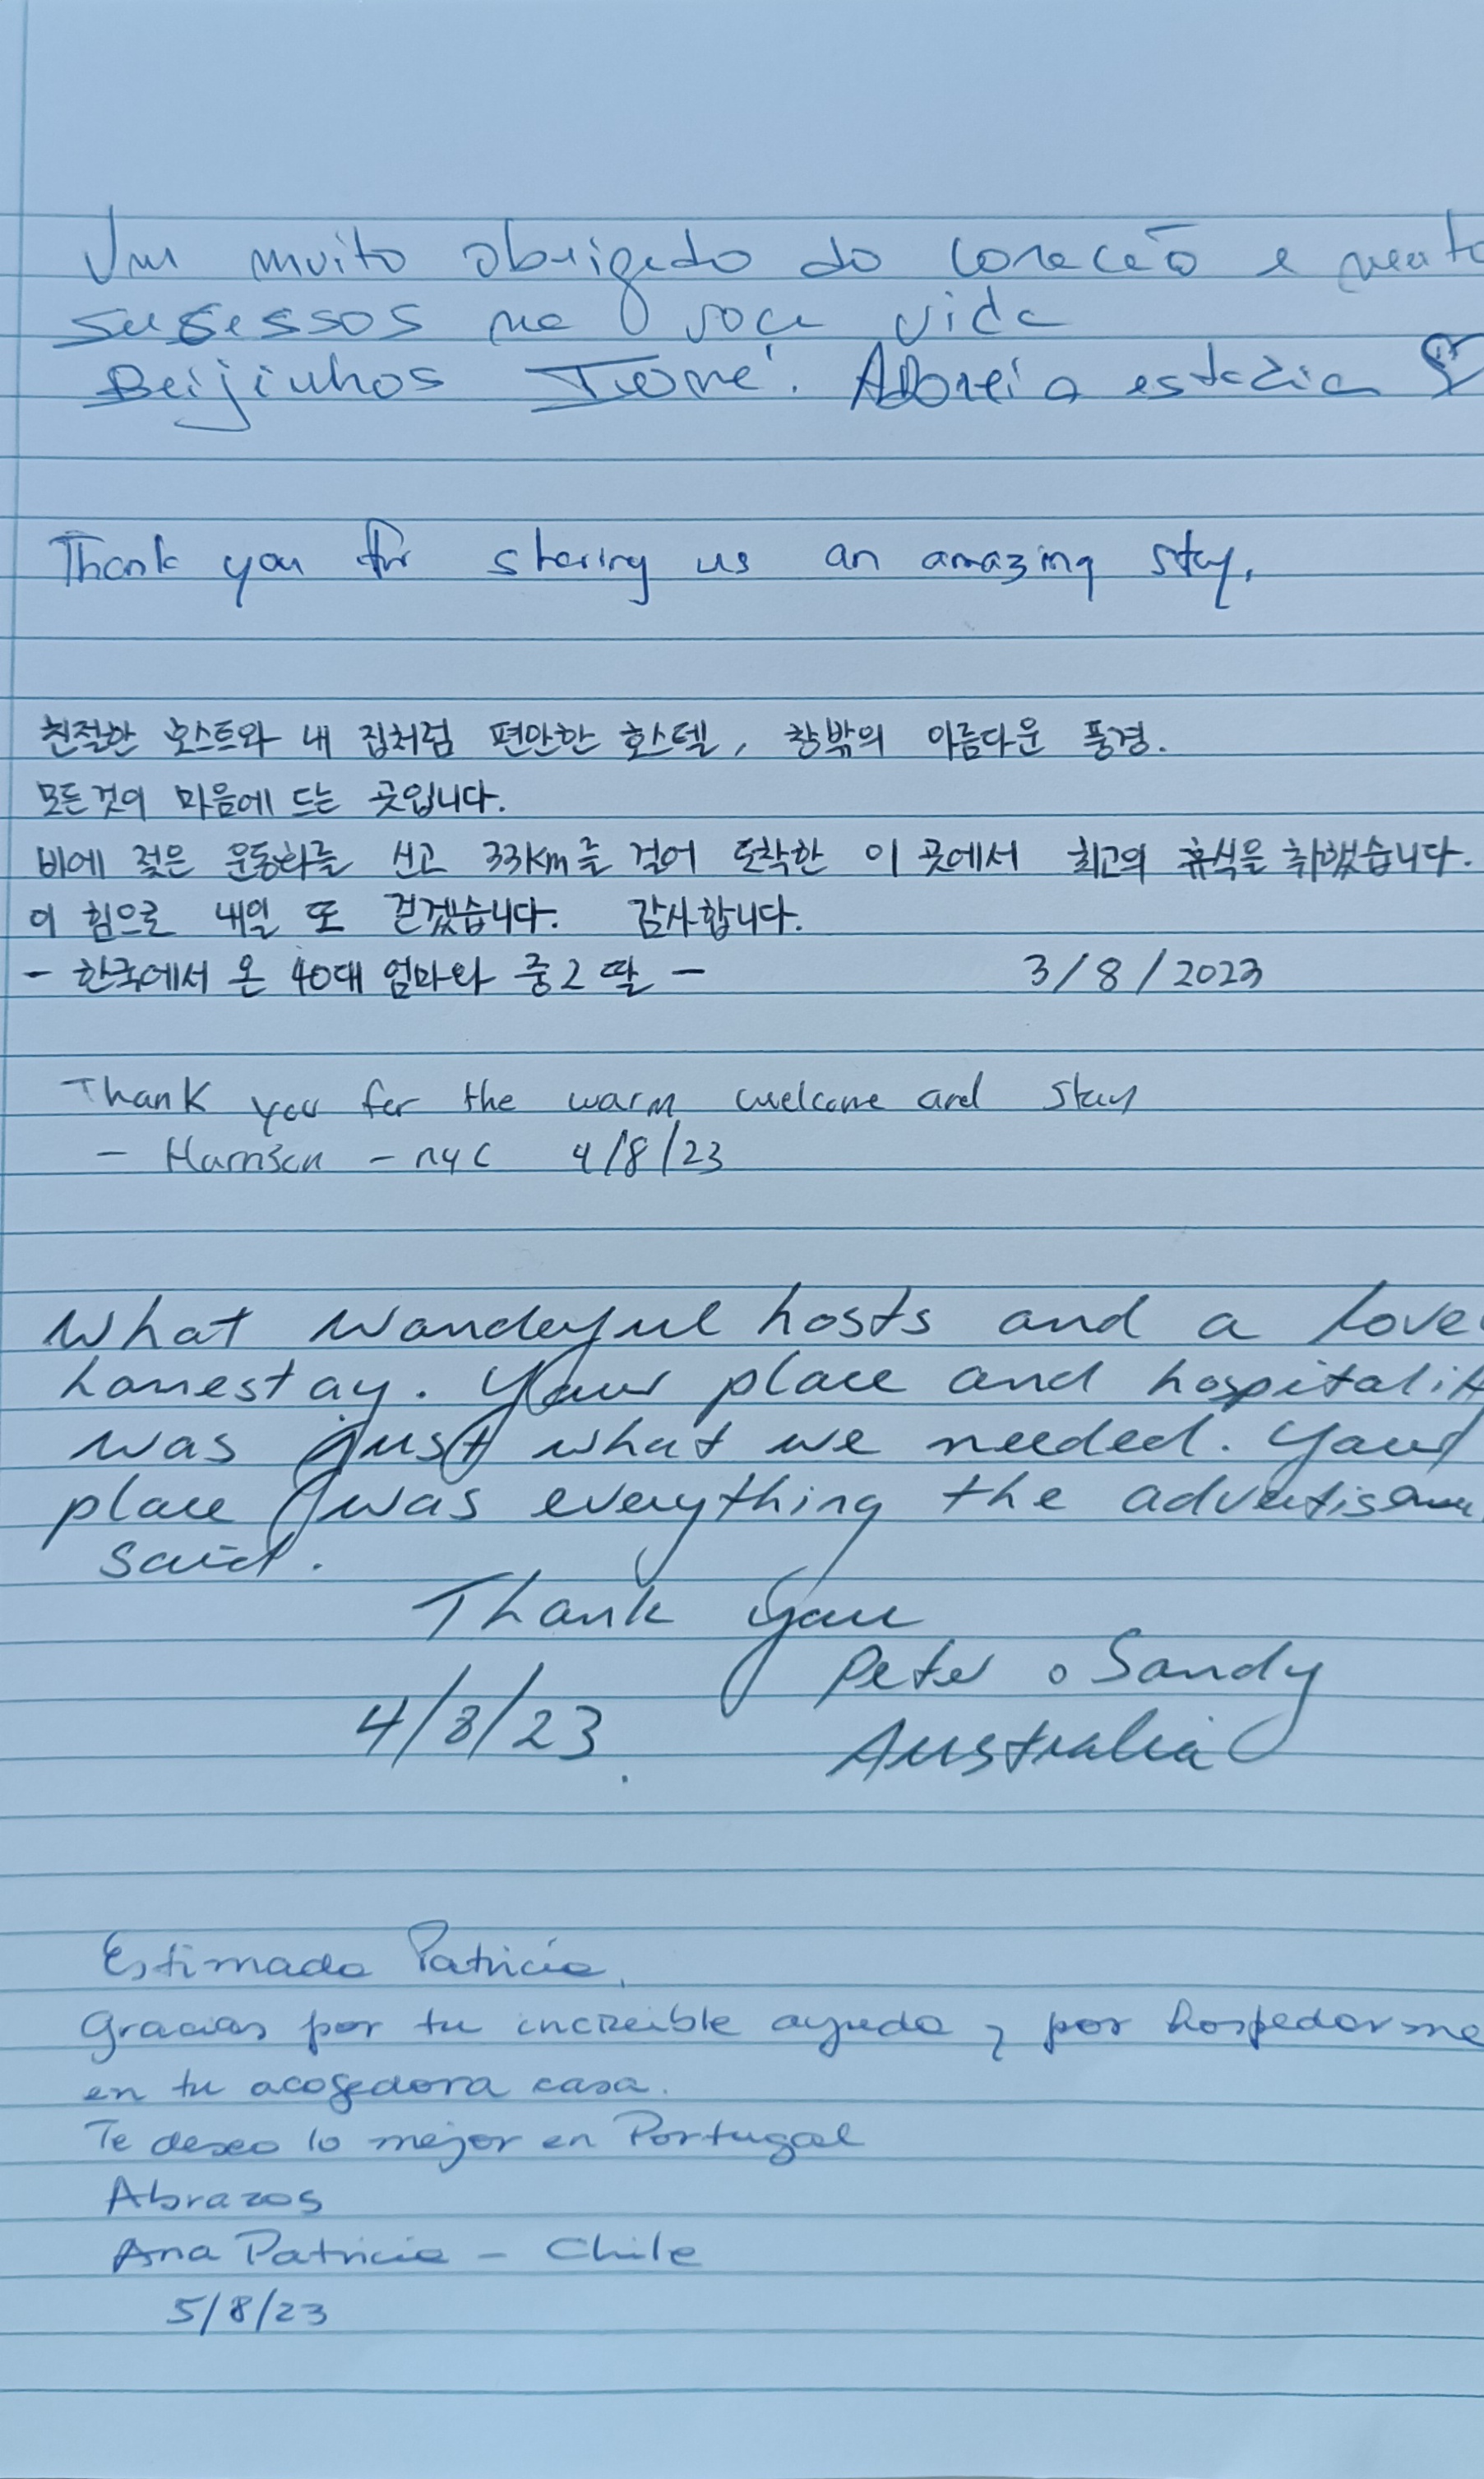 Um muito obrigado do coração e
sucessos na voce vida
Beijinhos Tomé. Adorei a estadia
Thank you for sharing us an amazing stay.
친절한 호스트와 내 집처럼 편안한 호스텔, 창밖의 아름다운 풍경.
모든것이 마음에 드는 곳입니다.
비에 젖은 운동화를 신고 33km를 걸어 도착한 이 곳에서 최고의 휴식을 취했습니다.
이 힘으로 내일 또 걷겠습니다. 감사합니다.
- 한국에서 온 40대 엄마와 중2 딸 - 3/8/2023
Thank you for the warm welcome and stay
- Harrison - nyc 4/8/23
What wonderful hosts and a love
homestay. Your place and hospitalit
was just what we needed. Your
place was everything the advertisem
said.
Thank you
Peter & Sandy
4/8/23. Australia
Estimada Patricia,
Gracias por tu increible ayuda y por hospedarme
en tu acogedora casa.
Te deseo lo mejor en Portugal
Abrazos
Ana Patricia - Chile
5/8/23